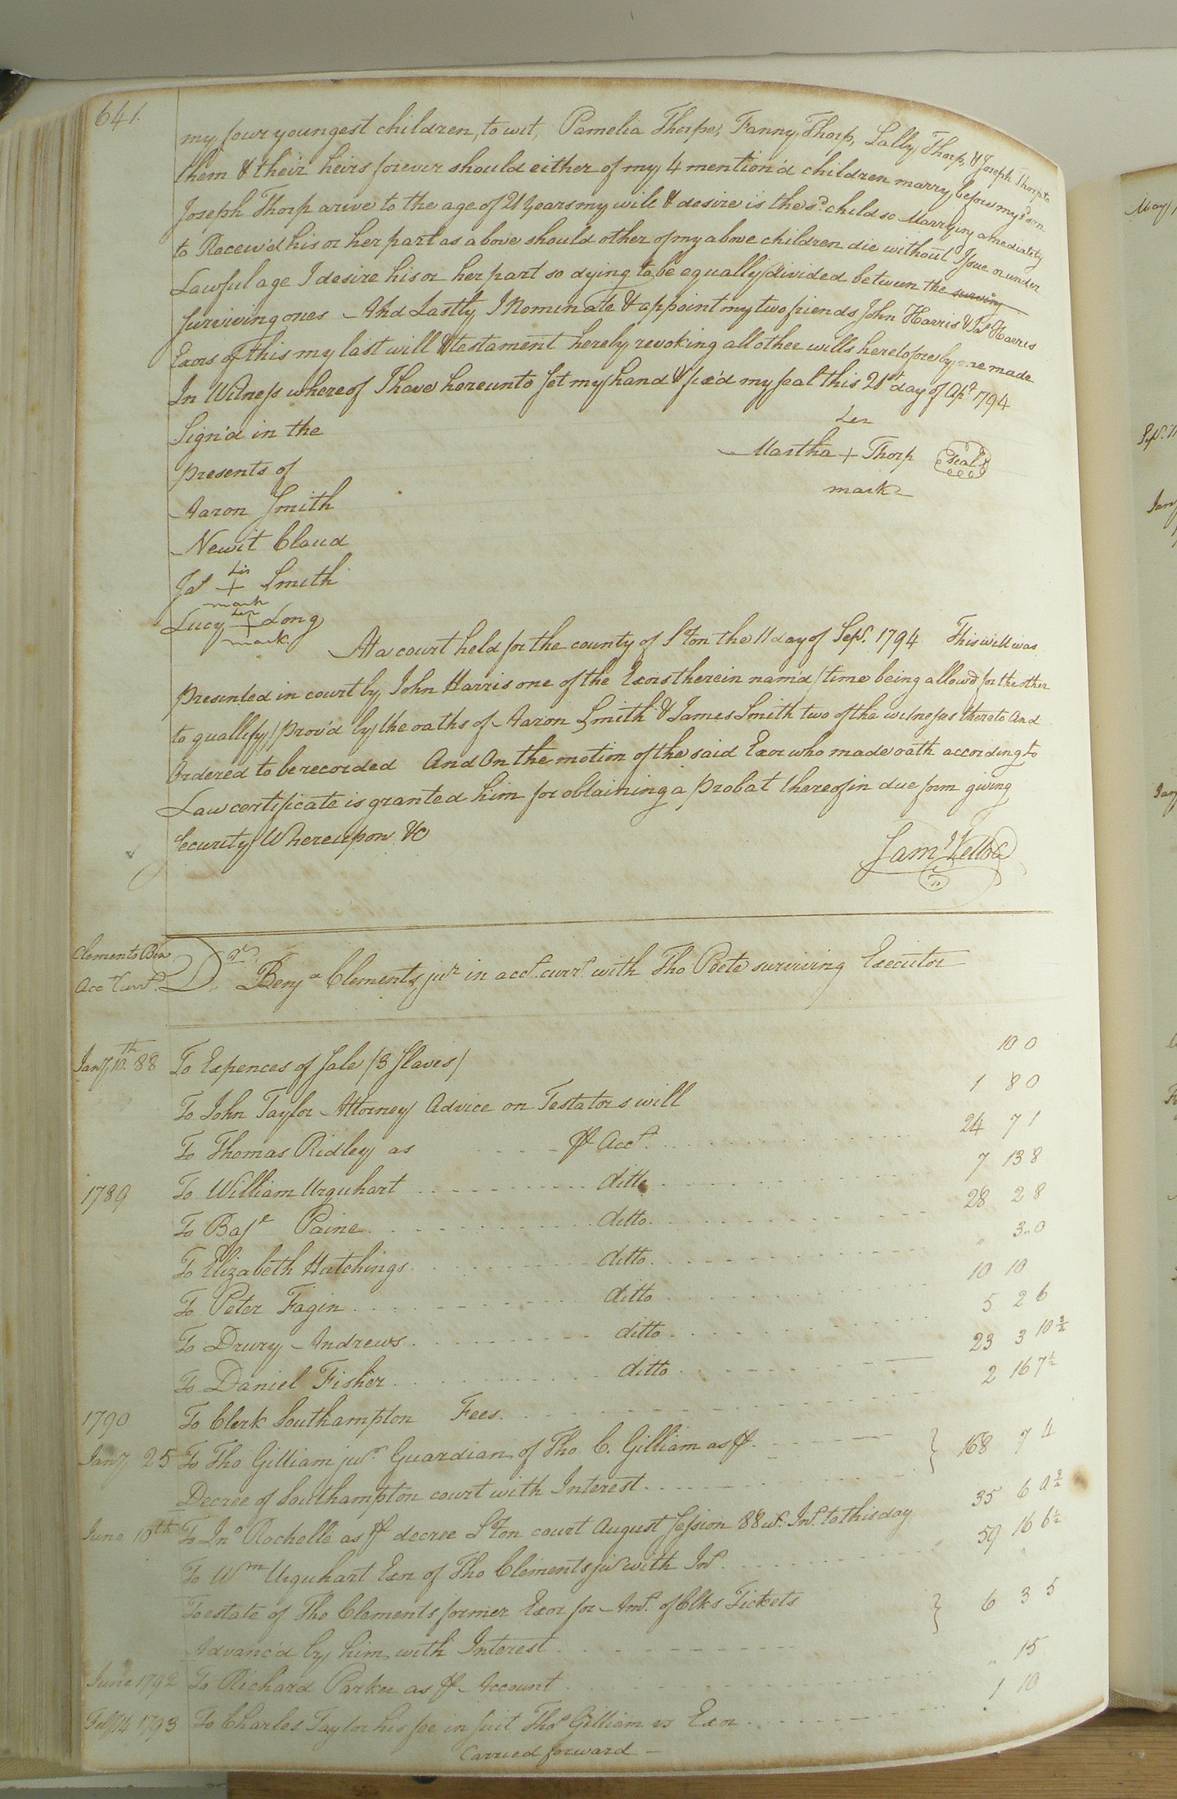 641.
my four youngest children, to wit, Pamelia Thorpe, Fanny Thorp, Sally Thorp, & Joseph Thorp to
them & their heirs forever should either of my 4 mention'd children marry before my son
Joseph Thorp arive to the age of 21 years my will & desire is the sd. child so Marrying amediately
to Receiv'd his or her part as above should other of my above children die without Issue or under
Lawful age I desire his or her part so dying to be equally divided between the
surviving ones And Lastly I Nominate & appoint my two friends John Harris & Harris
Exors of this my last will & testament hereby revoking all other wills heretofore by me made
In Witness whereof I have hereunto set my hand & fix'd my seal this 21st day of Apl. 1794
Sign'd in the
presents of
her
Martha + Thorp Seal
mark
Aaron Smith
Newit Claud
Jas his + mark Smith
Lucy her + mark Long
At a court held for the county of Ston the 11 day of Sepr. 1794 This will was
presented in court by John Harris one of the Exors therein nam'd (time being allow'd for the other
to quallify) prov'd by the oaths of Aaron Smith & James Smith two of the witnesses thereto And
Ordered to be recorded And On the motion of the said Exor who made oath according to
Law certificate is granted him for obtaining a probat thereof in due form giving
security Whereupon &c
Saml Kello
Clements Ben
Acct Currt.
Dr. Benja Clements, junr in acct. currt. with Tho Peete surviving Executor
Jany 10th 88 To Expences of Sale (3 Slaves) 10 0
To John Taylor Attorney Advice on Testators will 1 8 0
To Thomas Ridley as Pr Acct. 24 7 1
1789 To William Urquhart ditto 7 13 8
To Paine ditto 28 2 8
To Elizabeth Hutchings ditto 3 0
To Peter Fagin ditto 10 10
To Drury Andrews ditto 5 2 6
To Daniel Fisher ditto 23 3 10 3/4
1790 To Clerk Southampton Fees 2 16 7 1/2
Jany 25 To Tho Gilliam junr Guardian of Tho C. Gilliam as Pr
Decree of Southampton court with Interest } 168 7 4
June 10th To Jno Rochelle as Pr decree Ston court August Session 88 wt. Int. to this day 35 6
To Wm Urquhart Exr of Tho Clements jur with Int. 59 16 6 1/2
To estate of Tho Clements former Exor for Amt. of Clks Tickets
Advanc'd by him with Interest } 6 3 5
June 1792 To Richard Parker as Pr Account 15
1793 To Charles Taylor his fee in suit Thos Gilliam vs Exor 1 10
Carried forward